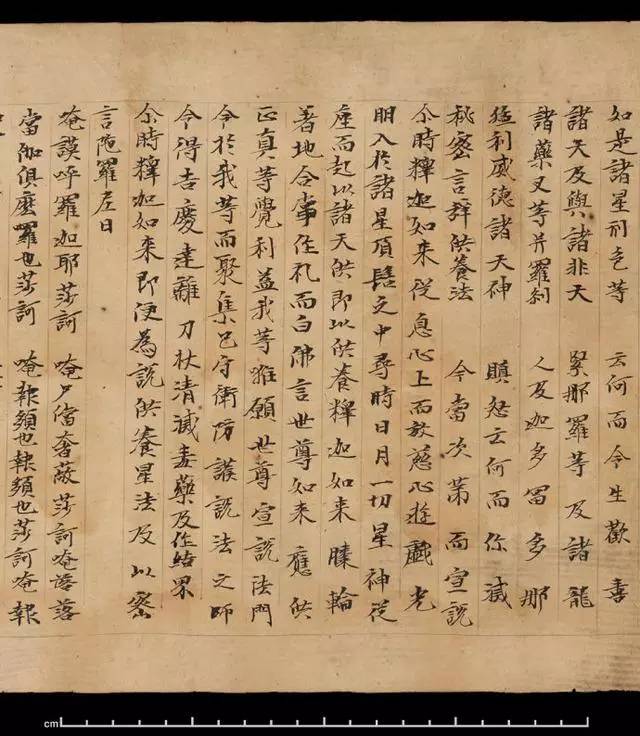 如是諸星刑色等　云何而令生歡喜
諸天及與諸非天　緊那羅等及諸龍
諸藥叉等并羅剎　人及迦多冨多那
猛利威德諸天神　瞋云何而滅
秘密言辭供養法　今當次第而宣說
尒時釋迦如來從息心上而放慈心遊戲光
明入於諸星頂髻之中尋時日月一切星神從
座而起以諸天供即以供養釋迦如來膝輪
著地合掌作礼而白佛言世尊如來應供
正真等覺利益我等唯願世尊宣說法門
令於我等而聚集已守衛防護說法之師
令得吉慶遠離刀杖清滅毒藥及作結界
尒時釋迦如來即便為說供養星法及以密
言陁羅尼曰
唵謨呼羅迦耶莎訶　唵尸儅奢蔽莎訶唵落落
當伽俱麼囉也莎訶　唵報頞也報頞也莎訶唵報
cm